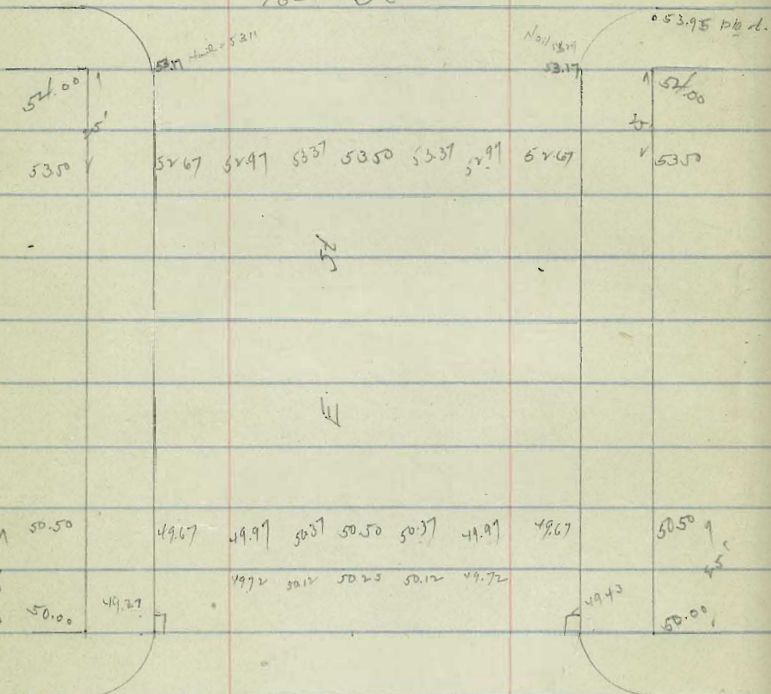 53.95
53.17
53.17
54.00
54.00
53.50 52.67 52.97 53.37 53.50 53.37 52.97 52.67 53.50
50.50 49.67 49.97 50.37 50.50 50.37 49.97 49.67 50.50
49.72 50.12 50.25 50.12 49.72
50.00 49.27 49.43 50.00